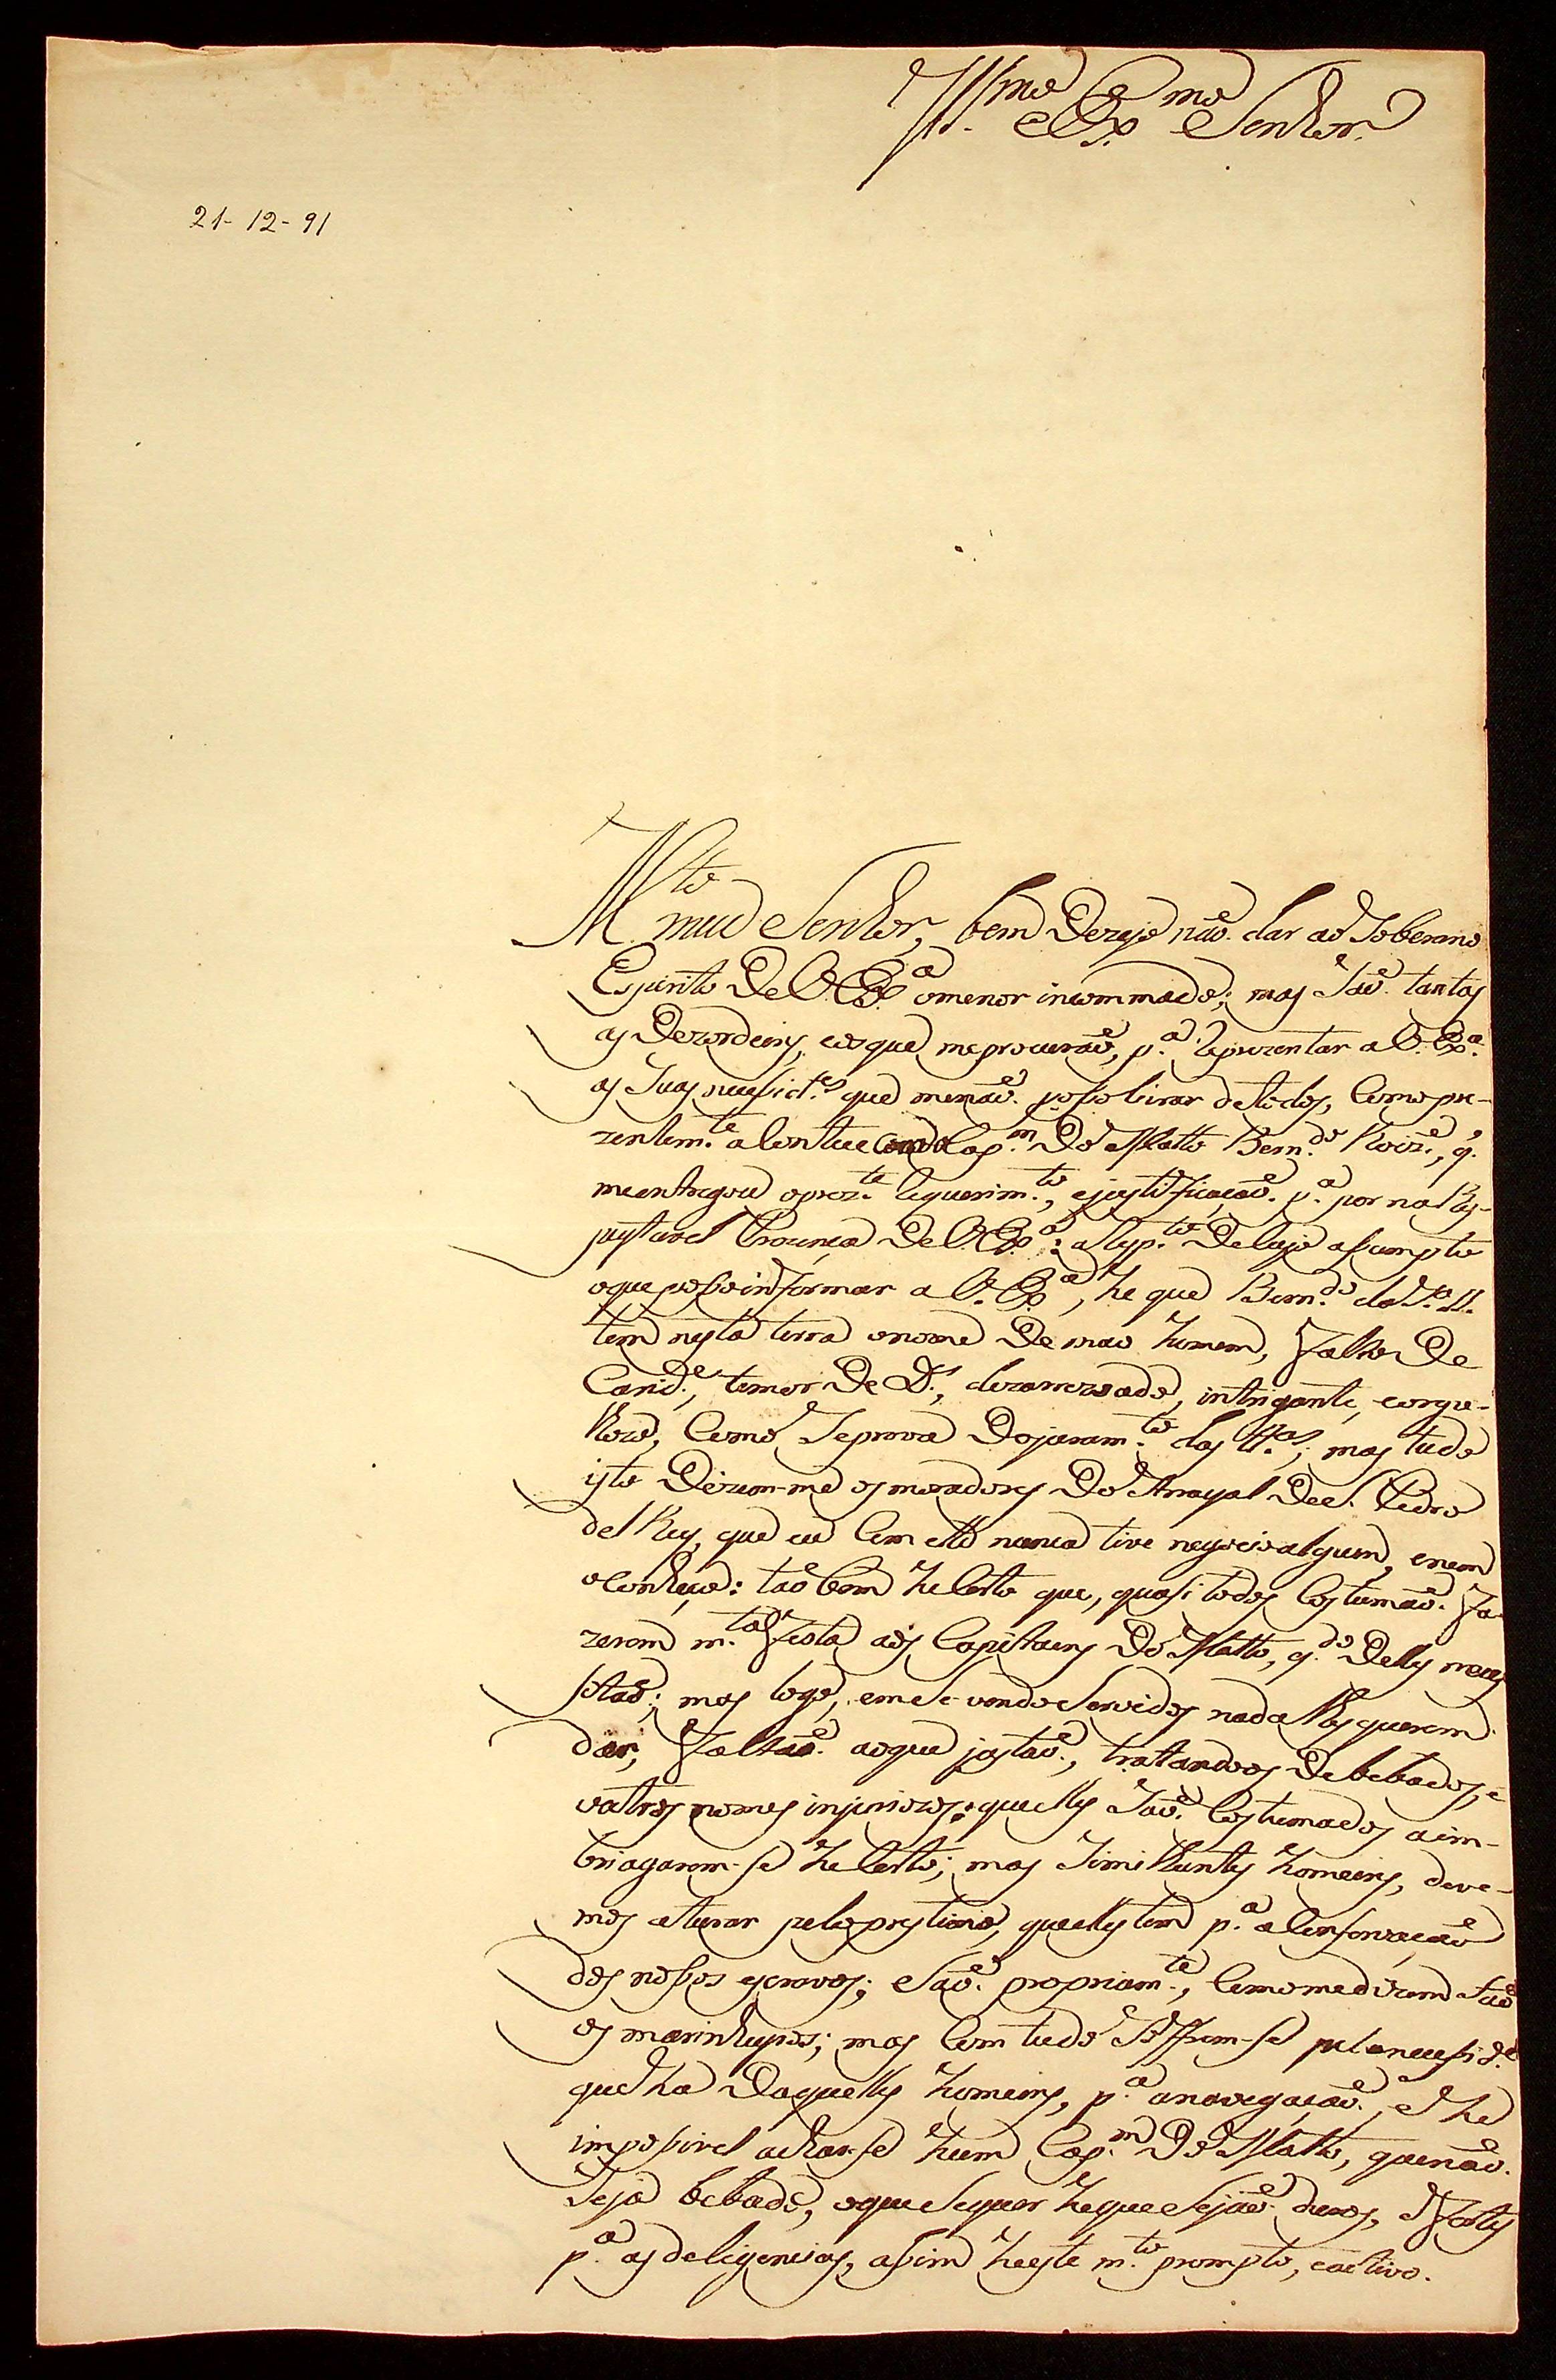 Ill.mo e Ex.mo Senhor
21-12-91
M.to meu Senhor, bem Dezejo naõ dar ao Soberano
Espirito De V. Ex.a o menor incommodo; mas Saõ tantas
as Dezordeins, e os que me procuraõ, p.a Reprezentar a V. Ex.a
as Suas necesid.es que me naõ poso livrar de todos, Como pre-
zentem.te a Conteceo Com o Cap.m Do Matto Bern.do Roiz', q'
me entregou o prez.te Requerim.to, e justificaçaõ p.a por na Res-
peitavel Prezença De V. Ex.a: a Resp.to De Cujo asumpto
o que poso informar a V. Ex.a, he que Bern.do da S.a
tem nesta terra o nome De mao homem, Falto De
Carid.e, temor De D.s, dezarrezoado, intrigante, e orgu-
lhozo, Como Se prova Do juram.to das tt.as; mas tudo
isto Dizem-me os moradores Do Arrayal De S. Pedro
del Rey, que eu Com elle nunca tive negocio algum, e nem
o Conheço: taõ bem he Certo que, quasi todos Costumaõ Fa-
zerem m.ta Festa aos Capitaens Do Matto, q.do Delles neces
sitaõ; mas logo, em Se vendo Servidos nada lhes querem
dar, Faltaõ ao que justaõ, tratandoos De bebados, e
outros nomes injuriozos: que elles Saõ Costumados a im-
briagarem-se he Certo; mas Similhantes homeins, deve-
mos aturar pelo prestimo, que elles tem p.a a Conservaçaõ
dos nosos escravos; e Saõ propriam.te, Como me dizem Saõ
os marinheyros; mas Com tudo Sofrem-se pela necesid.e
que ha Daquelles homeins, p.a a navegaçaõ; e he
imposivel achar-se hum Cap.m Do Matto, que naõ
Seja bebado, o que Se quer he que Sejaõ duros, e Fortes
p.a as deligencias, asim he este m.to prompto, e activo.